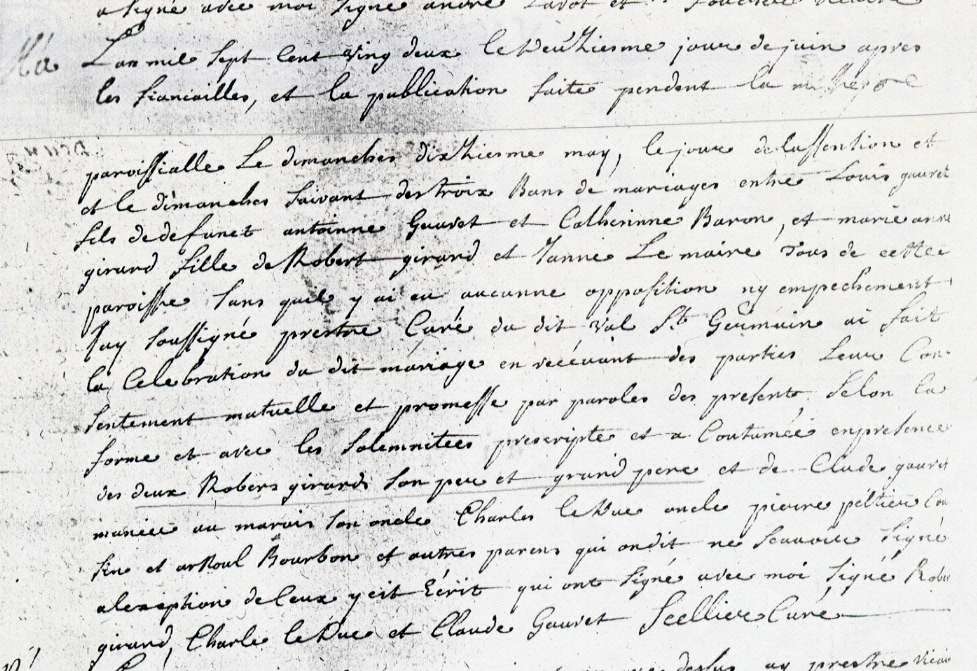 a signé avec moi signé andré
L'an mil sept cent ving deux le jour de juin apres
les fiancailles, et la publication faite pendent la
paroissialle Le dimanches dixhiesme may, le jour de lassention et
et le dimanches suivant des troix Bans de mariages entre Louis gauret
fils de defunct antoinne Gauret et Catherinne Baron, et marie anne
girard fille de Robert girard et Janne Le maire tous de cette
paroisse sans quil y ai eu aucunne opposition ny empechement
Jay soussigné prestre Curé du dit Val St Germain ai fait
la Celebration du dit mariage en recevant des parties Leur Con
sentement mutuelle et promesse par paroles des presents selon la
forme et avec les solemnitees prescripte et a Coutumée en presence
des deux Robers girards son pere et grand pere et de Claude gauret
au marais son oncle Charles le Duc oncle pierre peltier Cou
sin et Bourbon et autres parens qui ondit ne scauoir signe
alexeption de Ceux y cit Ecrit qui ont signé avec moi signé Rober
girard, Charle le Duc et Claude Gauret Scellier Curé
prestre